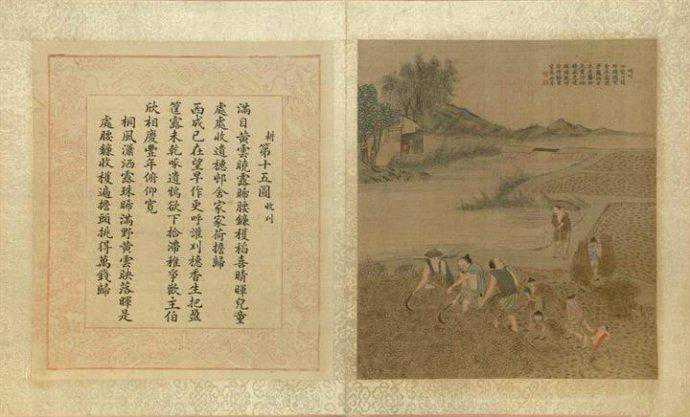 耕 第十五圖 收刈
滿目黃雲曉露晞腰鐮穫稻喜晴暉兒童
處處收遺穗邨舍家家荷擔歸
西成已在望早作更呼誰刈穗香生把盈
筐露未乾啄遺鴉欲下拾滯稚爭歡主伯
欣相慶豐年俯仰寬
桐風瀟洒露珠晞滿野黃雲映落暉是
處腰鐮收穫遍擔頭挑得萬錢歸